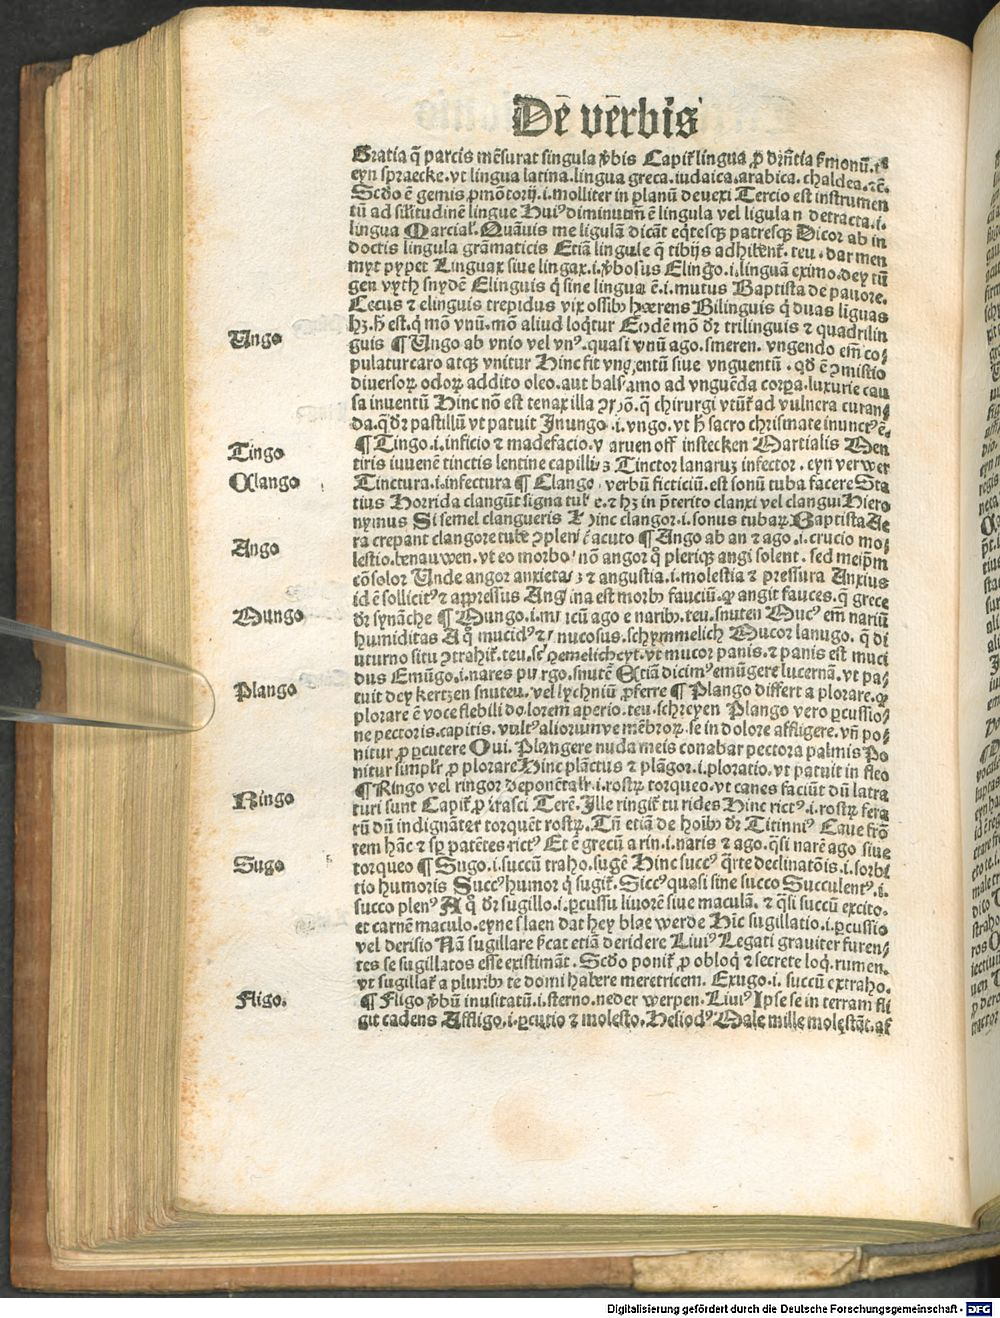 Dē vērbis
Gratia q̄ parcis mēsurat singula ꝟbis Capit᷑ lingua ꝓ dr̄ntia ẜmonū.
eyn spraecke. vt lingua latina. lingua greca. iudaica. arabica. chaldea. ⁊ē.
Scđo ē gemis ꝓmōtorij .i. molliter in planū deuexi Tercio est instrumen
tū ad silitudinē lingue Huiꝰ diminutū ē lingula vel ligula n detracta .i.
lingua Marcial. Quāuis me ligulā dicāt eq̄tesqꝫ patresqꝫ Dicor ab in
doctis lingula grāmaticis Etiā lingule q̄ tibijs adhibent᷑. teu. dar men
myt pypet Linguax siue lingax .i. ꝟbosus Elingo .i. linguā eximo. dey tū
gen vyth snydē Elinguis q̇ sine lingua ē .i. mutus Baptista de pauore.
Cecus ⁊ elinguis trepidus vix ossibꝰ hærens Bilinguis q̇ duas liguas
hꝫ. ħ est. q̇ mō vnū. mō aliud loq̄tur Eodē mō dr̄ trilinguis ⁊ quadrilin
Ungo
guis ¶ Ungo ab vnio vel vnꝰ. quasi vnū ago. smeren. vngendo em̄ co
pulatur caro atqꝫ vnitur Hinc fit vngentū siue vnguentū. qđ ē ꝯmistio
diuersoꝝ odoꝝ addito oleo. aut balsamo ad vnguēda corpa. luxurie cau
sa inuentū Hinc nō est tenax illa ꝯfectō. q̄ chirurgi vtūt᷑ ad vulnera curan
da. q̄ dr̄ pastillū vt patuit Inungo .i. vngo. vt ħ sacro chrismate inunctꝰ ē.
Tingo
¶ Tingo .i. inficio ⁊ madefacio. v aruen off instecken Martialis Men
tiris iuuenē tinctis lentine capillis Tinctor lanarꝫ infector. eyn verwer
Clango
Tinctura .i. infectura ¶ Clango verbū ficticiū. est sonū tuba facere Sta
tius Horrida clangūt signa tube. ⁊ hꝫ in p̄terito clanxi vel clangui Hiero
nymus Si semel clangueris Hinc clangor .i. sonus tubaꝝ. Baptista Ae
Ango
ra crepant clangore tube ꝯpleri ē acuto ¶ Ango ab an ⁊ ago .i. crucio mo
lestio. benauwen. vt eo morbo nō angor q̇ pleriqꝫ angi solent. sed meip̄m
eō solor Unde angor anxietas ⁊ angustia .i. molestia ⁊ pressura Anxius
id ē sollicitꝰ ⁊ appressus Angina est morbꝰ fauciū. qꝛ angit fauces. q̄ grece
Mungo
dr̄ synāche ¶ Mungo .i. mucū ago e naribꝰ. teu. snuten Mucꝰ em̄ nariū
humiditas A q̇ mucidꝰ ⁊ mucosus. schymmelich Mucor lanugo. q̄ di
uturno situ ꝯtrahit᷑. teu. schemelicheyt. vt mucor panis. ⁊ panis est muci
dus Emūgo .i. nares purgo. snutē Etiā dicimꝰ emūgere lucernā. vt pa
Plango
tuit dey kertzen snuten. vel lychniū ꝓferre ¶ Plango differt a plorare. qꝛ
plorare ē voce flebili dolorem aperio. teu. schreyen Plango vero ꝑcussio
ne pectoris. capitis. vultꝰ alioriunue mēbroꝝ. se in dolore affligere. vn̄ po
nitur ꝓ ꝑcutere Oui. Plangere nuda meis conabar pectora palmis Po
nitur simpl̄r ꝓ plorare Hinc plāctus ⁊ plāgor .i. ploratio. vt patuit in fleo
Ringo
¶ Ringo vel ringor deponētal̄r .i. rostꝝ torqueo. vt canes faciūt dū latra
turi sunt Capit᷑ ꝓ irasci Terē. Ille ringit᷑ tu rides Hinc rictꝰ .i. rostꝝ fera
rū dū indignāter torquēt rostꝝ. Tn̄ etiā de hoibꝰ dr̄ Titinniꝰ Caue frō
tem hāc ⁊ sꝑ patētes rictꝰ Et ē grecū a rin .i. naris ⁊ ago. q̄si narē ago siue
Sugo
torqueo ¶ Sugo .i. succū traho. sugē Hinc succꝰ q̄rte declinatōis .i. sorbi
tio humoris Succꝰ humor q̇ sugit᷑. Siccꝰ quasi sine succo Succulentꝰ .i.
succo plenꝰ A q̇ dr̄ sugillo .i. ꝑcussu liuorē siue maculā. ⁊ q̄si succū excito.
et carnē maculo. eyne slaen dat hey blae werde Hīc sugillatio .i. ꝑcussio
vel derisio Nā sugillare ẜcat etiā deridere Liuiꝰ Legati grauiter furen
tes se sugillatos esse existimāt. Scđo ponit᷑ ꝓ obloq̇ ⁊ secrete loq̇. rumen.
vt sugillat᷑ a pluribꝰ te domi habere meretricem. Exugo .i. succū extraho.
Fligo.
¶ Fligo ꝟbū inusitatū .i. sterno. neder werpen. Liuiꝰ Ipse se in terram fli
git cadens Affligo .i. ꝑcutio ⁊ molesto. Hesiodꝰ Male mille molestāt. af
Digitalisierung gefördert durch die Deutsche Forschungsgemeinschaft - DFG